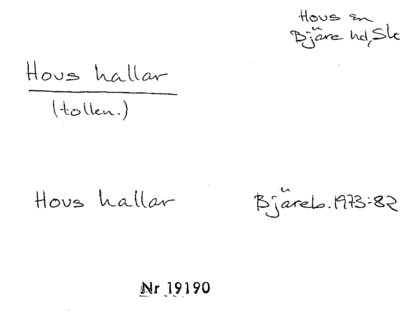 Hovs sn
Bjäre hd, Sk
Hovs hallar
(tolkn.)
Hovs hallar Bjäreb. 1973:82
Nr 19190